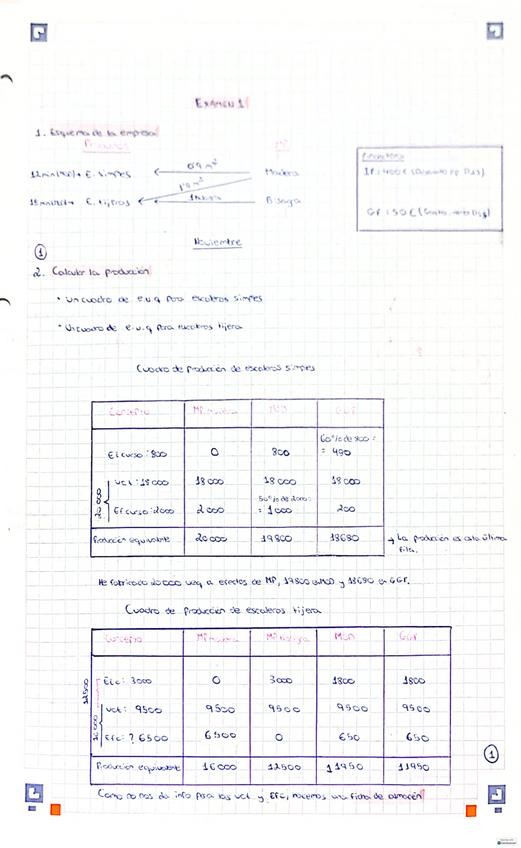 EXAMEN 1
1. Esquema de la empresa
Productos MP
12min(MOD) + E. simples 0'9 m² Madera
1'9 m²
15min + E. tijeras 1 bisagra Bisagra
Financiero
IF: 400€ (Descuento pp
GF: 50€ (
Noviembre
①
2. Calcular la producción
• Un cuadro de e.u.q para escaleras simples
• Un cuadro de e.u.q para escaleras tijera
Cuadro de producción de escaleras simples
Concepto MP madera MOD GGF
60% de 800 =
Ei curso: 800 0 800 = 480
Uct: 18000 18000 18000 18000
50% de 2000:
Ef curso: 2000 2000 = 1000 200
Producción equivalente 20000 19800 18680 → La producción es esta última
fila.
He fabricado 20000 ueq a efectos de MP, 19800 en MOD y 18680 en GGF.
Cuadro de producción de escaleras tijera
Concepto MP madera MP bisagra MOD GGF
12500
Eic: 3000 0 3000 1800 1800
Uct: 9500 9500 9500 9500 9500
16000
Efc: ? 6500 6500 0 650 650
Producción equivalente 16000 12500 11950 11950
①
Como no nos da info para las uct y Efc, hacemos una ficha de almacén